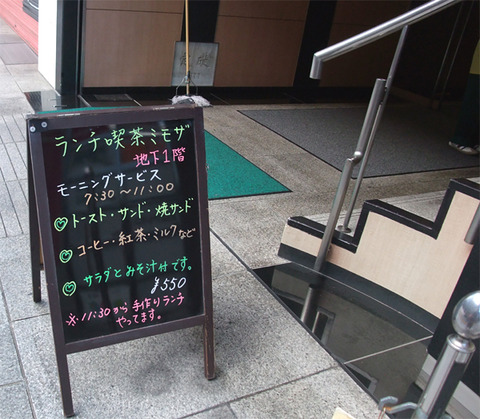 ランチ喫茶ミモザ
地下1階
モーニングサービス
7:30〜11:00
トースト・サンド・焼サンド
コーヒー・紅茶・ミルクなど
サラダとおそ汁付です。
¥550
※11:30から手作りランチ
やってます。